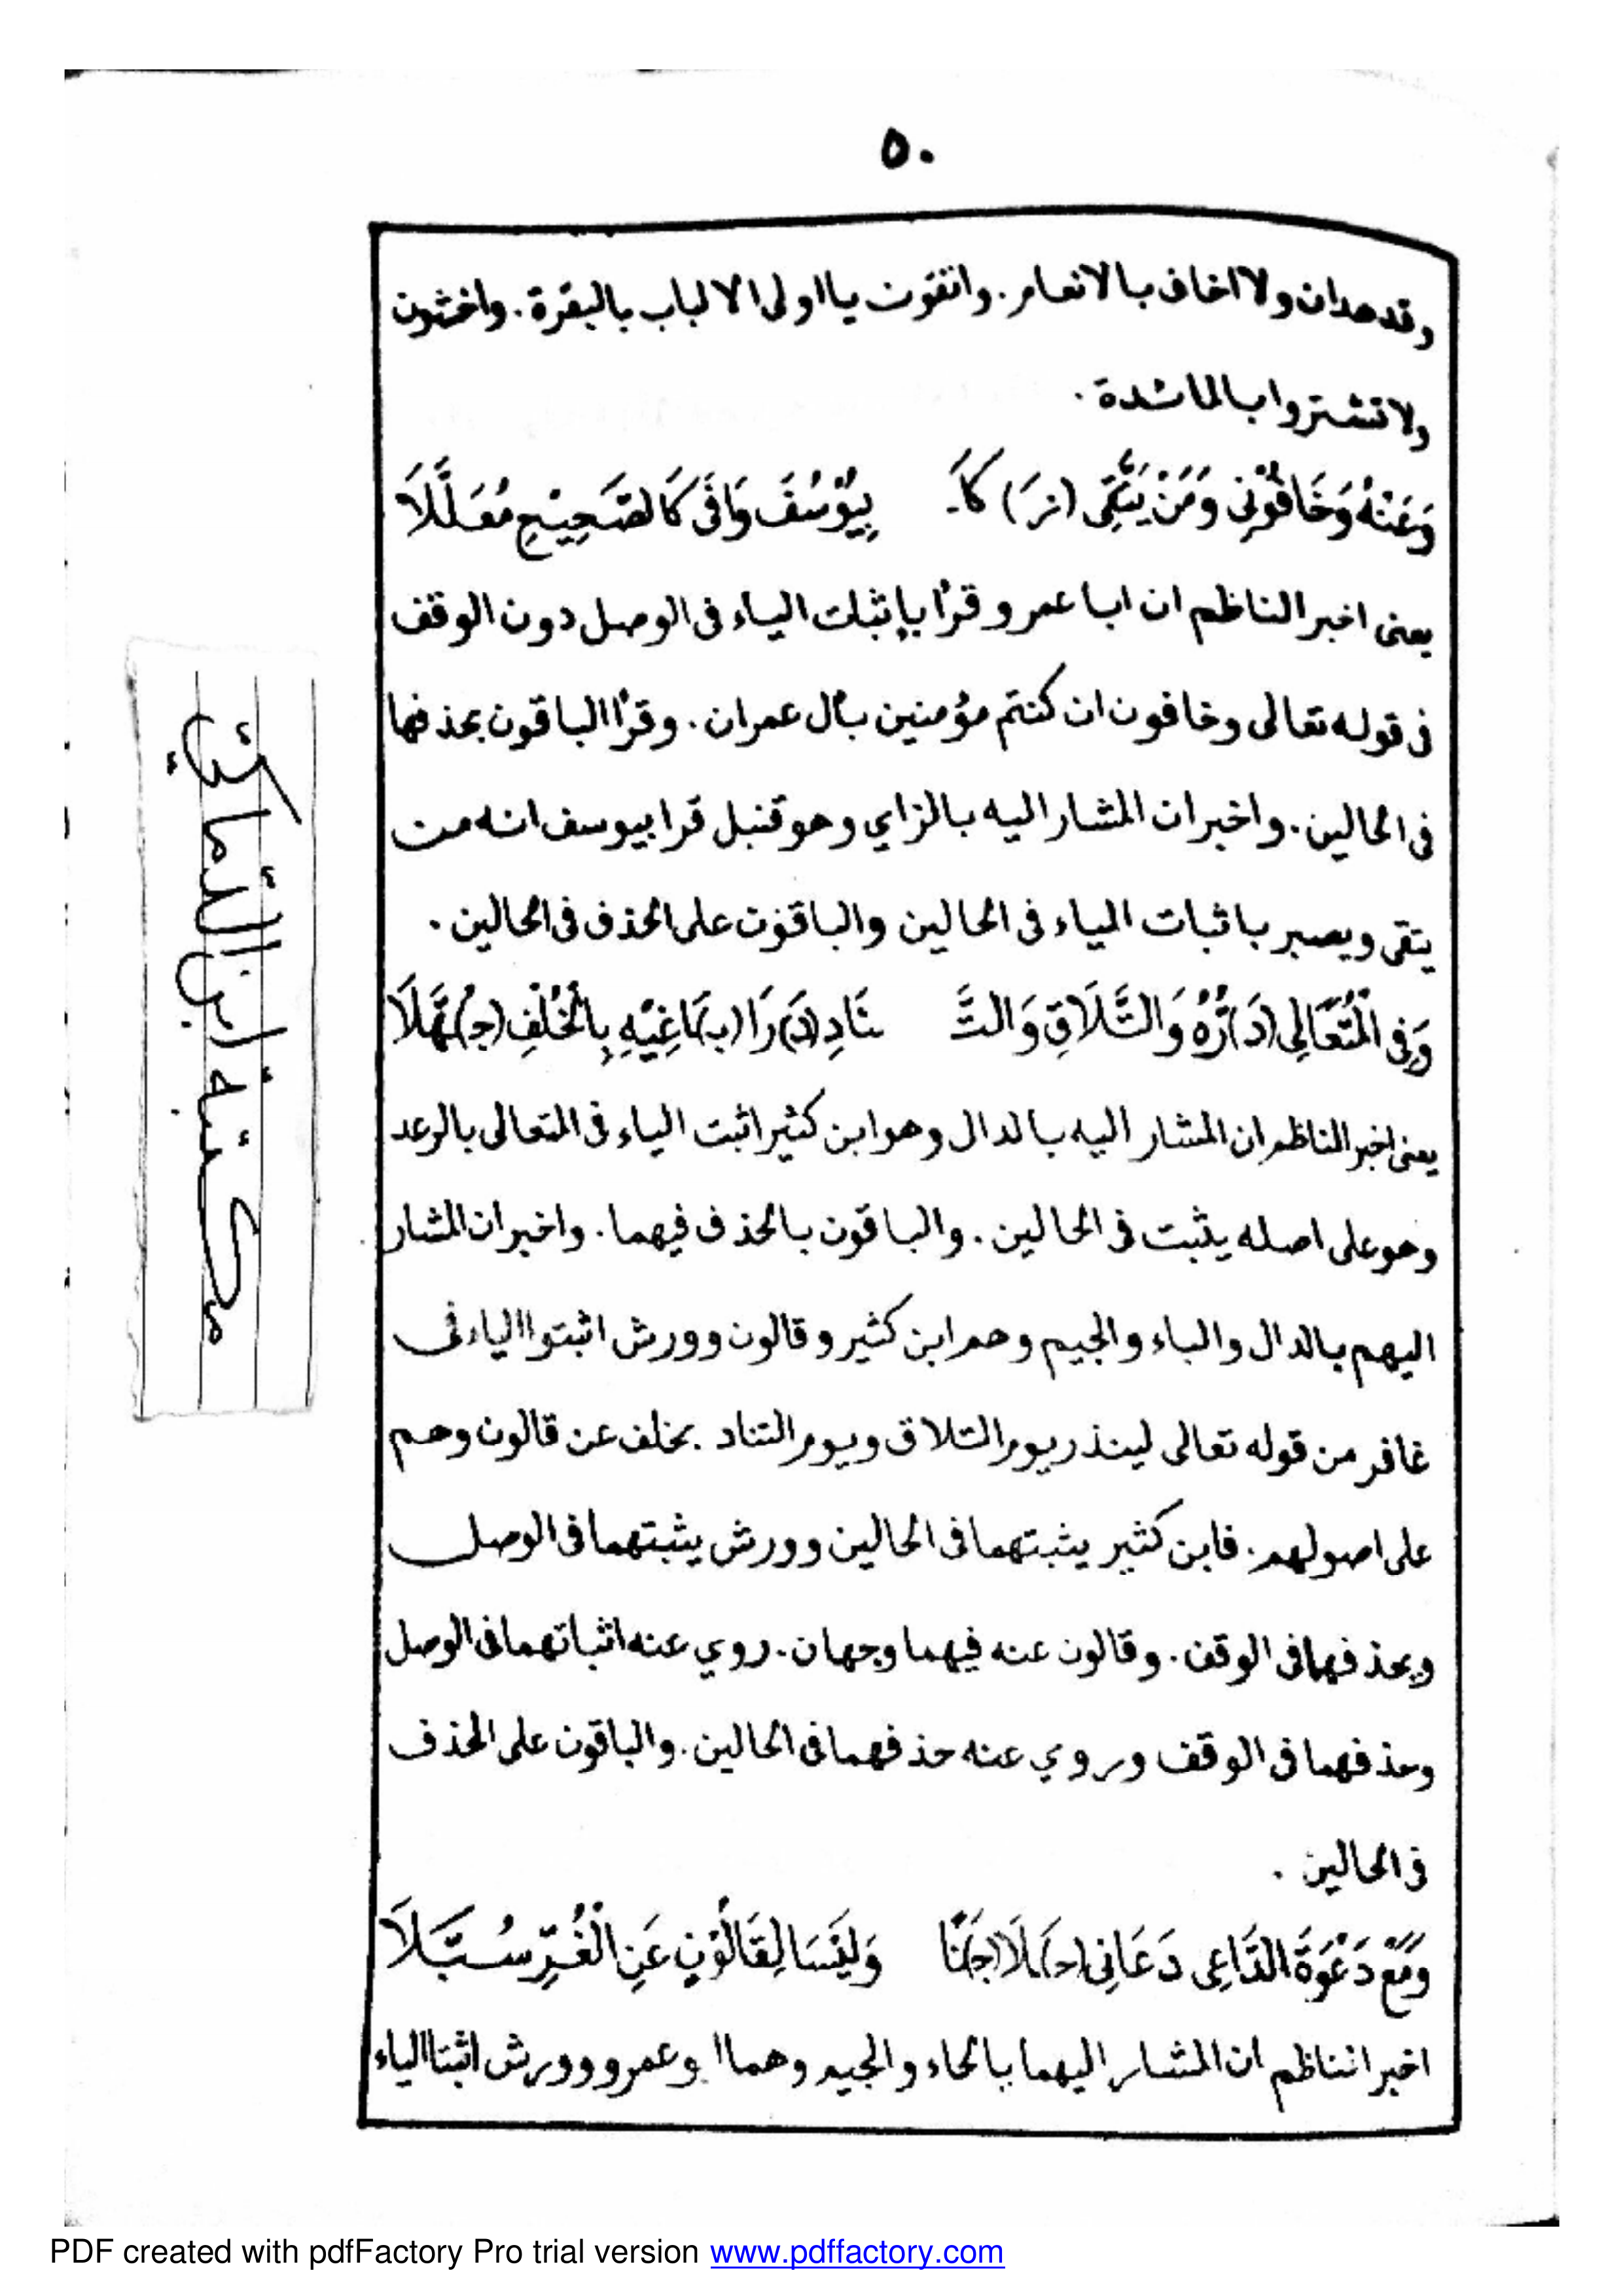 ٥٠
وقد هدان ولا اخاف بالانعام . واتقون يا اولى الالباب بالبقرة . واخشون
ولا تشتروا بالمائدة .
وَعَنْهُ وَخَافُوْنِى وَمَنْ يَتَّقِى (زَ) كَاـ بِيُوْسُفَ وَافَى كَالصَّحِيْحِ مُعَلَّلَا
يعنى اخبر الناظم ان ابا عمرو قرأ بإثبات الياء فى الوصل دون الوقف
فى قوله تعالى وخافون ان كنتم مؤمنين بأل عمران . وقرأ الباقون بحذفها
فى الحالين . واخبر ان المشار اليه بالزاي وهو قنبل قرا بيوسف انه من
يتقى ويصبر باثبات الياء فى الحالين والباقون على الحذف فى الحالين .
وَفِى الْمُتَعَالِى (دُ) رُّهُ وَالتَّلَاقِ وَالتَّ نَادِ (دَ) رَا (بَ) اغِيْهِ بِالْخُلْفِ (جُ) هَّلَا
يعنى اخبر الناظم ان المشار اليه بالدال وهو ابن كثير اثبت الياء فى المتعالى بالرعد
وهو على اصله يثبت فى الحالين . والباقون بالحذف فيهما . واخبر ان المشار
اليهم بالدال والباء والجيم وهم ابن كثير وقالون وورش اثبتوا الياء فى
غافر من قوله تعالى لينذر يوم التلاق ويوم التناد . بخلف عن قالون وهم
على اصولهم . فابن كثير يثبتهما فى الحالين وورش يثبتهما فى الوصل
ويحذفهما فى الوقف . وقالون عنه فيهما وجهان . روي عنه اثباتهما فى الوصل
وحذفهما فى الوقف وروي عنه حذفهما فى الحالين . والباقون على الحذف
فى الحالين .
وَمَعْ دَعْوَةَ الدَّاعِى دَعَانِى (حَ) لَا (جَ) نًا وَلَيْسَا لِقَالُوْنٍ عَنِ الْغُرِّ سُبَّلَا
اخبر الناظم ان المشار اليهما بالحاء والجيم وهما ا وعمرو وورش اثبتا الياء
مكتبة ابن الدماكي
PDF created with pdfFactory Pro trial version www.pdffactory.com